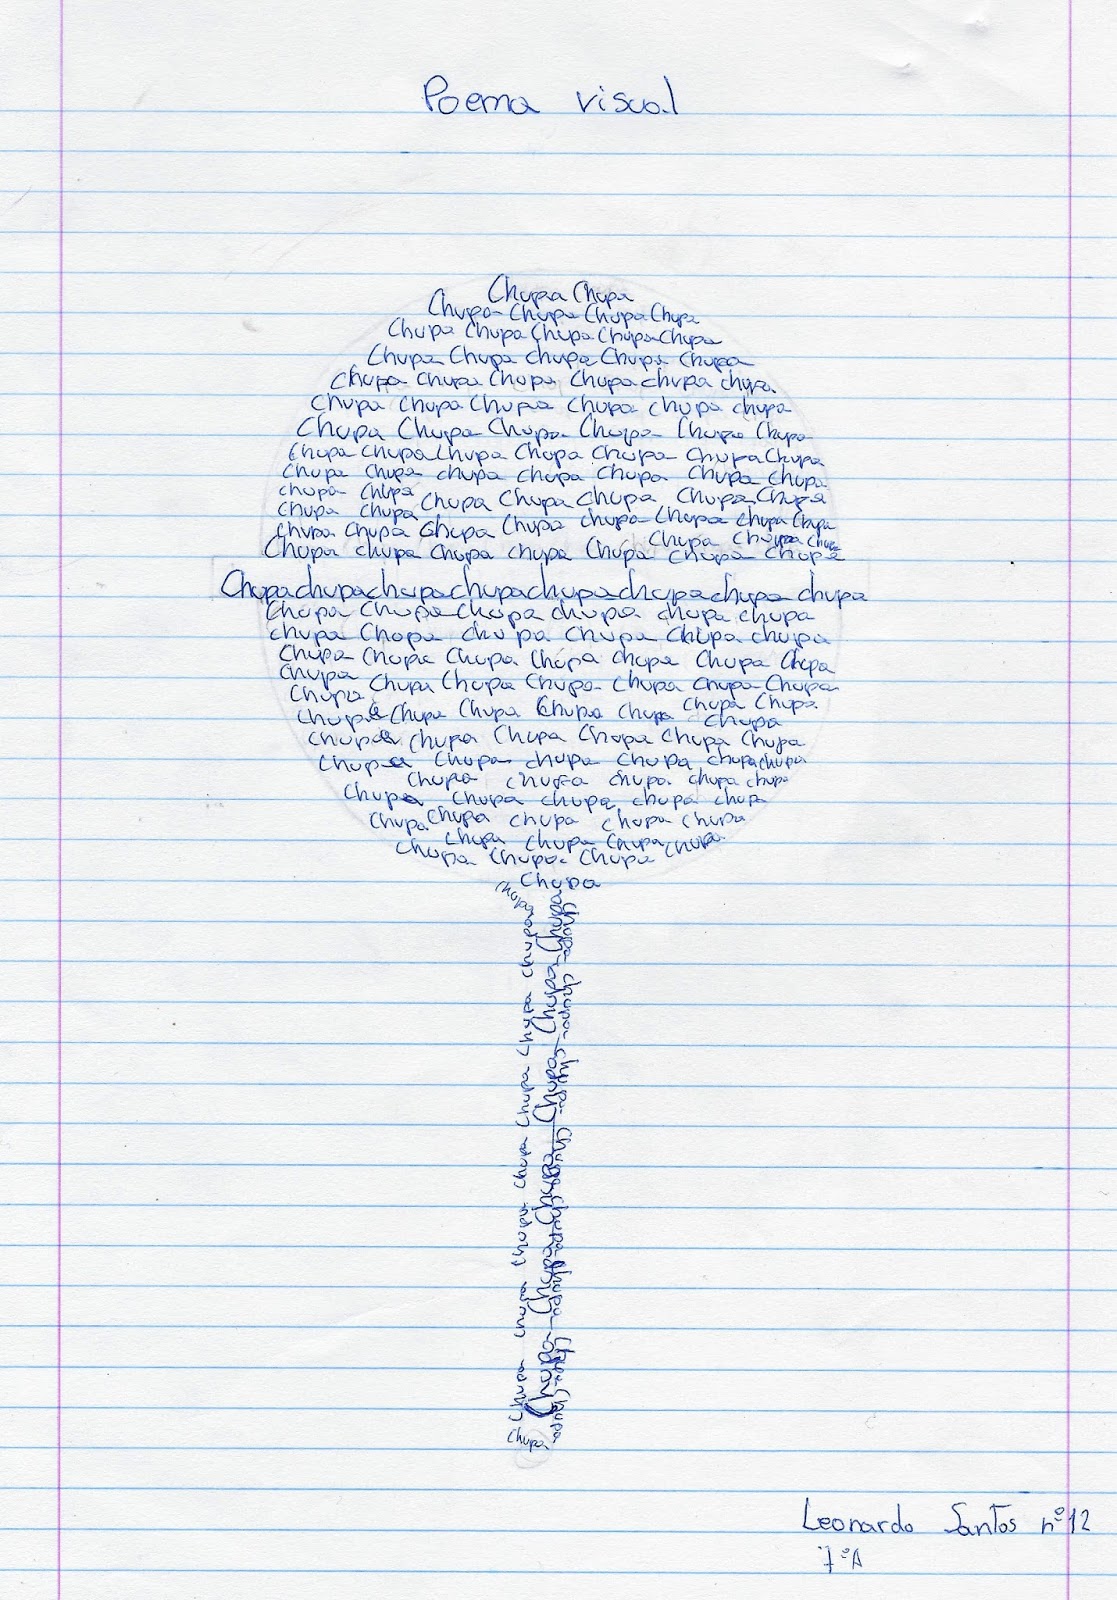 Poema visual
Chupa Chupa
Chupa Chupa Chupa Chupa
Chupa Chupa Chupa Chupa Chupa
Chupa Chupa chupa Chupa Chupa
Chupa Chupa Chupa Chupa chupa chupa
Chupa Chupa Chupa Chupa chupa chupa
Chupa Chupa Chupa Chupa Chupa Chupa
Chupa Chupa Chupa Chupa Chupa Chupa Chupa
Chupa Chupa chupa chupa Chupa Chupa chupa
chupa Chupa Chupa Chupa chupa Chupa Chupa
chupa chupa Chupa chupa Chupa chupa Chupa
chupa Chupa Chupa Chupa Chupa chupa
Chupa chupa Chupa chupa Chupa chupa chupa
Chupachupachupachupachupachupachupa chupa
Chupa Chupa chupa chupa chupa chupa
chupa Chupa chupa Chupa Chupa chupa
Chupa Chupa Chupa Chupa chupa Chupa Chupa
Chupa Chupa Chupa Chupa chupa Chupa Chupa
Chupa Chupa Chupa
Chupa Chupa Chupa Chupa chupa Chupa
chupa chupa Chupa Chupa Chupa Chupa
Chupa Chupa chupa chupa chupachupa
Chupa chupa chupa chupa chupa
Chupa Chupa chupa chupa chupa
Chupa Chupa chupa chupa Chupa
chupa chupa Chupa chupa
Chupa Chupa Chupa
Chupa
chupa
Chupa Chupa Chupa Chupa Chupa Chupa Chupa Chupa
Chupa Chupa Chupa Chupa Chupa Chupa Chupa
Chupa chupa chupa chupa chupa chupa chupa chupa
Chupa
Leonardo Santos nº12
7ºA